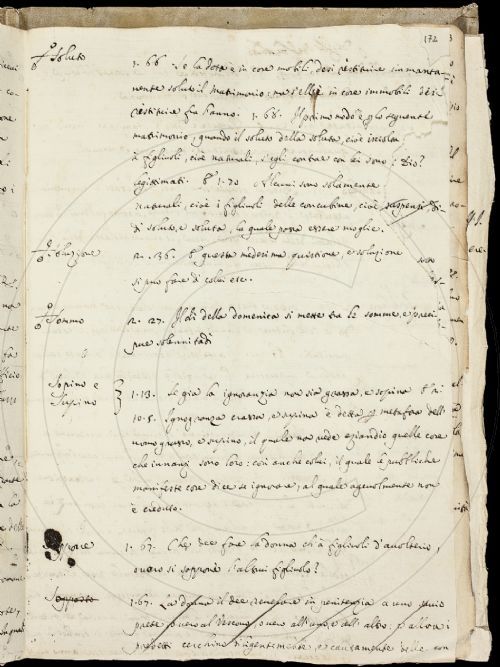 172
Soluto
1. 66. Se la dota è in cose mobili, desi restituire inmanta-
nente soluto il matrimonio; ma s'ell'è in cose immobili desi
restituire fra l'anno. 1. 68. Il primo modo è per seguente
matrimonio, quando il soluto della soluta, cioè
à figliuoli, cioè naturali, s'egli contrae con lei sono
legittimati. 1. 70 Alcuni sono solamente
naturali, cioè i figliuoli delle concubine, cioè
di soluto, e soluta, la quale possa essere moglie.
Soluzione
2. 36. questa medesima quistione, e soluzione
si può fare di colui etc.
Sommo
2. 27. Il dì della domenica si mette tra le somme, e preci-
pue solennitadi
Sopino e
Supino
1. 13. Se già la ignoranzia non sia grassa, e sopina
10. 5. Ignoranza crassa, e supina è detta metafora dell'
uomo grasso, e supino, il quale non vede eziandio quelle cose
che innanzi sono loro: così anche colui, il quale le pubbliche
manifeste cose dice se ignorare, al quale agevolmente non
è creduto.
Sopporre
1. 67. Che dee fare la donna ch'à figliuoli d'avolterio,
ovvero si soppone l'altrui figliuolo?
Sopposto
1. 67. La donna il dee revelare in penitenzia a uno savio
prete, ovvero al Vescovo, ovvero all'uno, e all'altro. E allora i
predetti cerchino diligentemente, e cautamente con